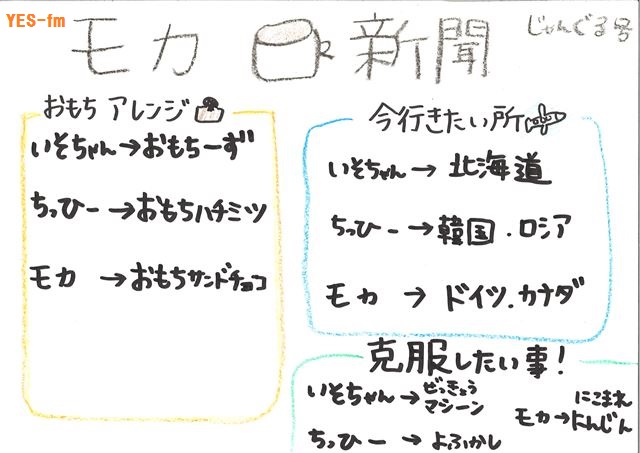 YES-fm
モカ 新聞
じゃんぐる号
おもちアレンジ
いそちゃん→おもちーず
ちっひー→おもちハチミツ
モカ→おもちサンドチョコ
今行きたい所
いそちゃん→北海道
ちっひー→韓国.ロシア
モカ→ドイツ.カナダ
克服したい事!
いそちゃん→ぜっきょう
マシーン
ちっひー→よふかし
にこまれ
モカ→にんじん